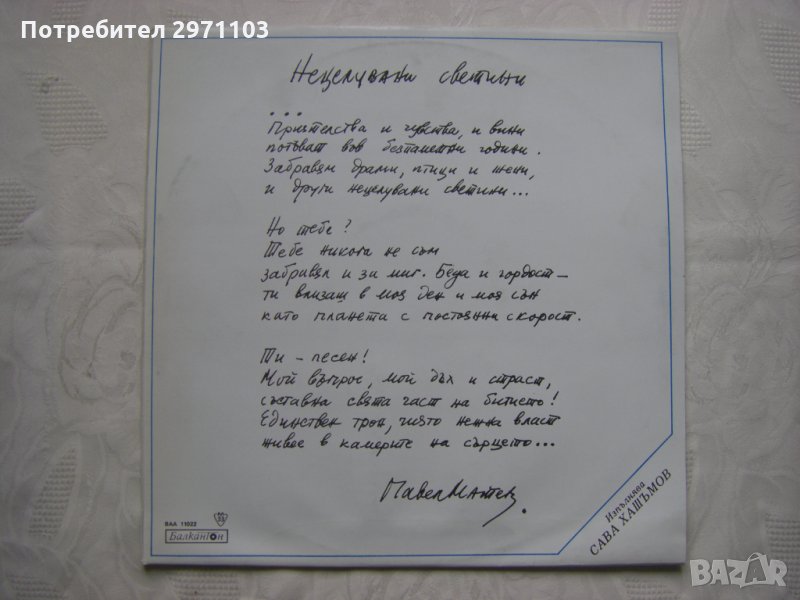 Потребител 2971103
Нецелувани светини
...
Приятелства и чувства, и вини
потъват във безпаметни години.
Забравям драми, птици и жени,
и други нецелувани светини...
Но тебе?
Тебе никога не съм
забравял и за миг. Беда и гордост –
ти влизаш в моя ден и моя сън
като планета с постоянни скорост.
Ти – песен!
Мой въпрос, мой дъх и страст,
съставна свята част на битието!
Единствен трон, чиято нежна власт
живее в камерите на сърцето...
Павел Матев.
ВАА 11022
Балкантон
Изпълнява
САВА ХАШЪМОВ
BAZAR